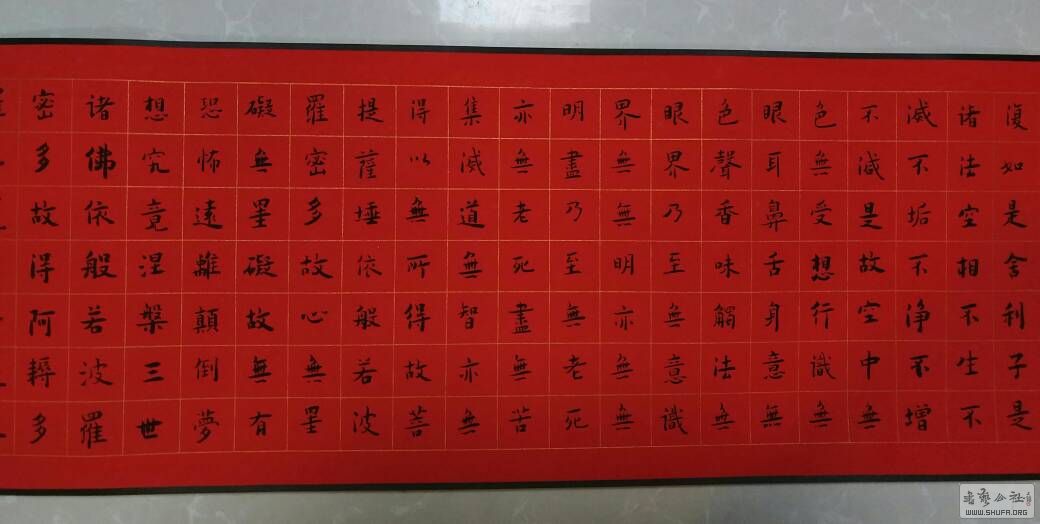 復如是舍利子是
诸法空相不生不
滅不垢不净不增
不減是故空中無
色無受想行识無
眼耳鼻舌身意無
色聲香味觸法無
眼界乃至無意識
界無無明亦無無
明盡乃至無老死
亦無老死盡無苦
集滅道無智亦無
得以無所得故菩
提薩埵依般若波
羅密多故心無罣
礙無罣礙故無有
恐怖遠離顛倒夢
想究竟涅槃三世
诸佛依般若波羅
密多故得阿耨多
書藝公社
WWW.SHUFA.ORG